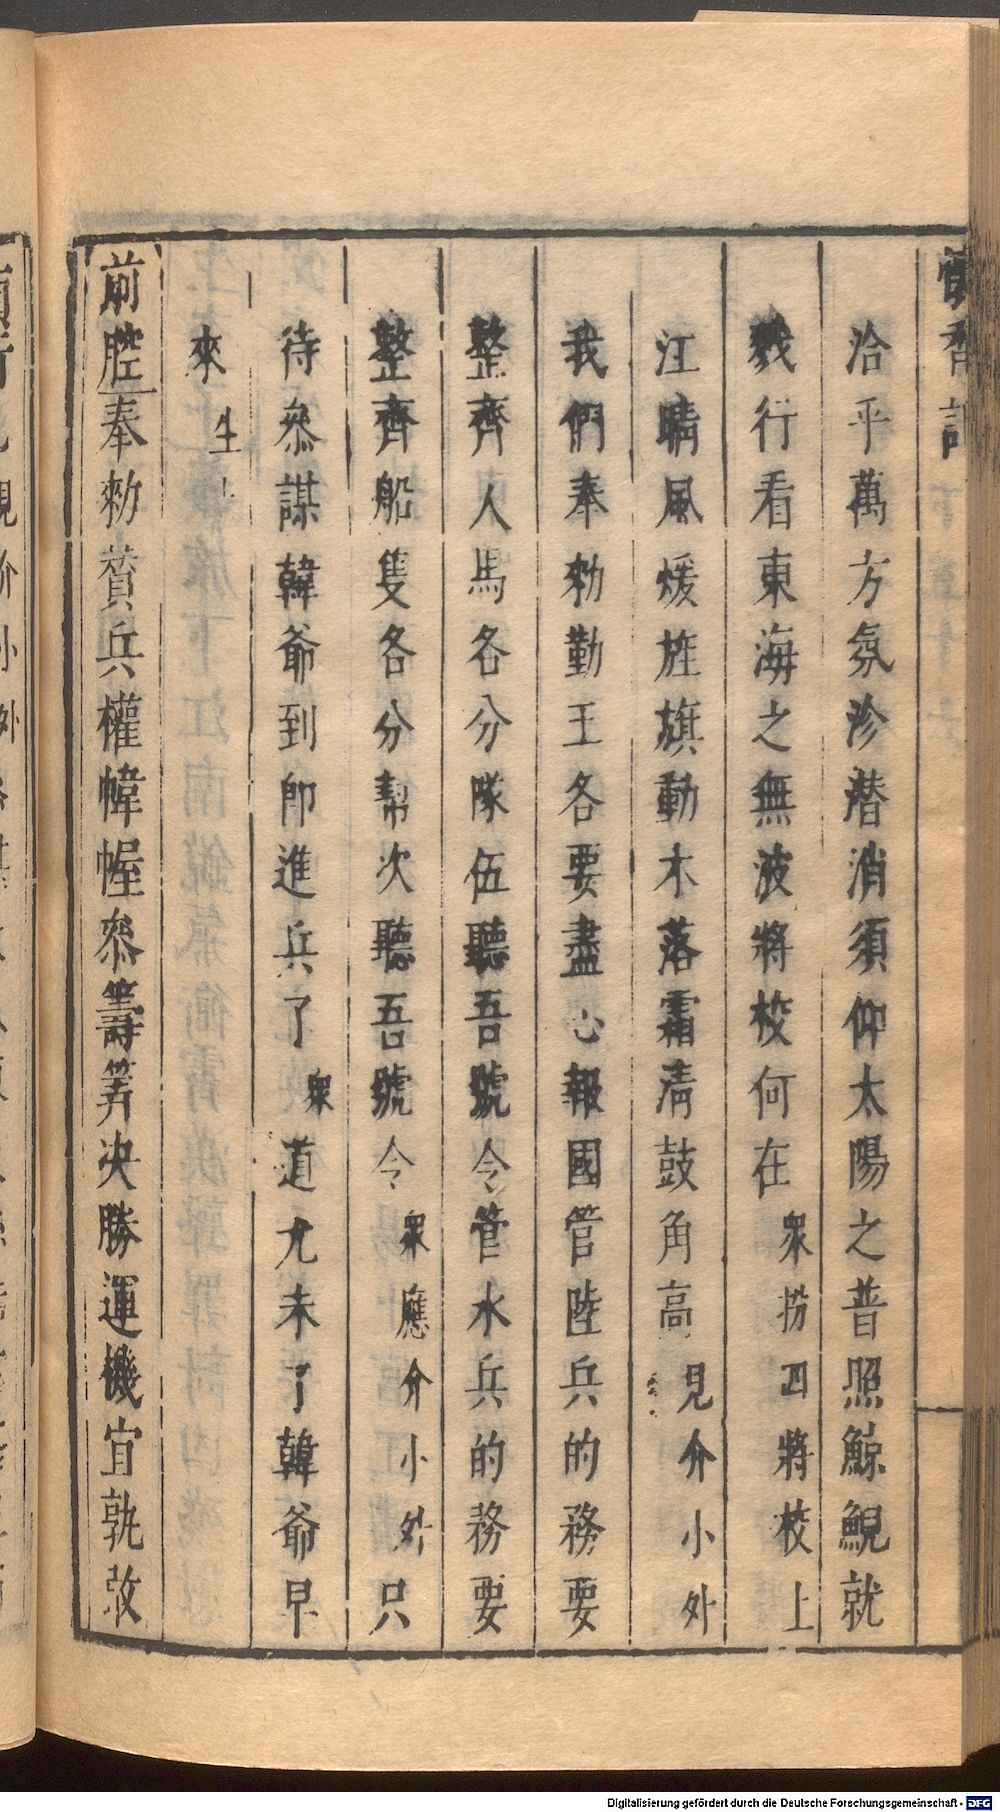 洽乎萬方氛沴潜消須仰太陽之普照鯨鯢就
戮行看東海之無波將校何在衆扮四將校上
江晴風煖旌旗動木落霜清鼓角高見介小外
我們奉勑勤王各要盡心報國管陸兵的務要
整齊人馬各分隊伍聽吾號令管水兵的務要
整齊船隻各分幫次聽吾號令衆應介小外只
待叅謀韓爺到卽進兵了衆道尤未了韓爺早
來生上
前腔奉勑賛兵權幃幄叅籌筭决勝運機宜孰敢
Digitalisierung gefördert durch die Deutsche Forschungsgemeinschaft - DFG